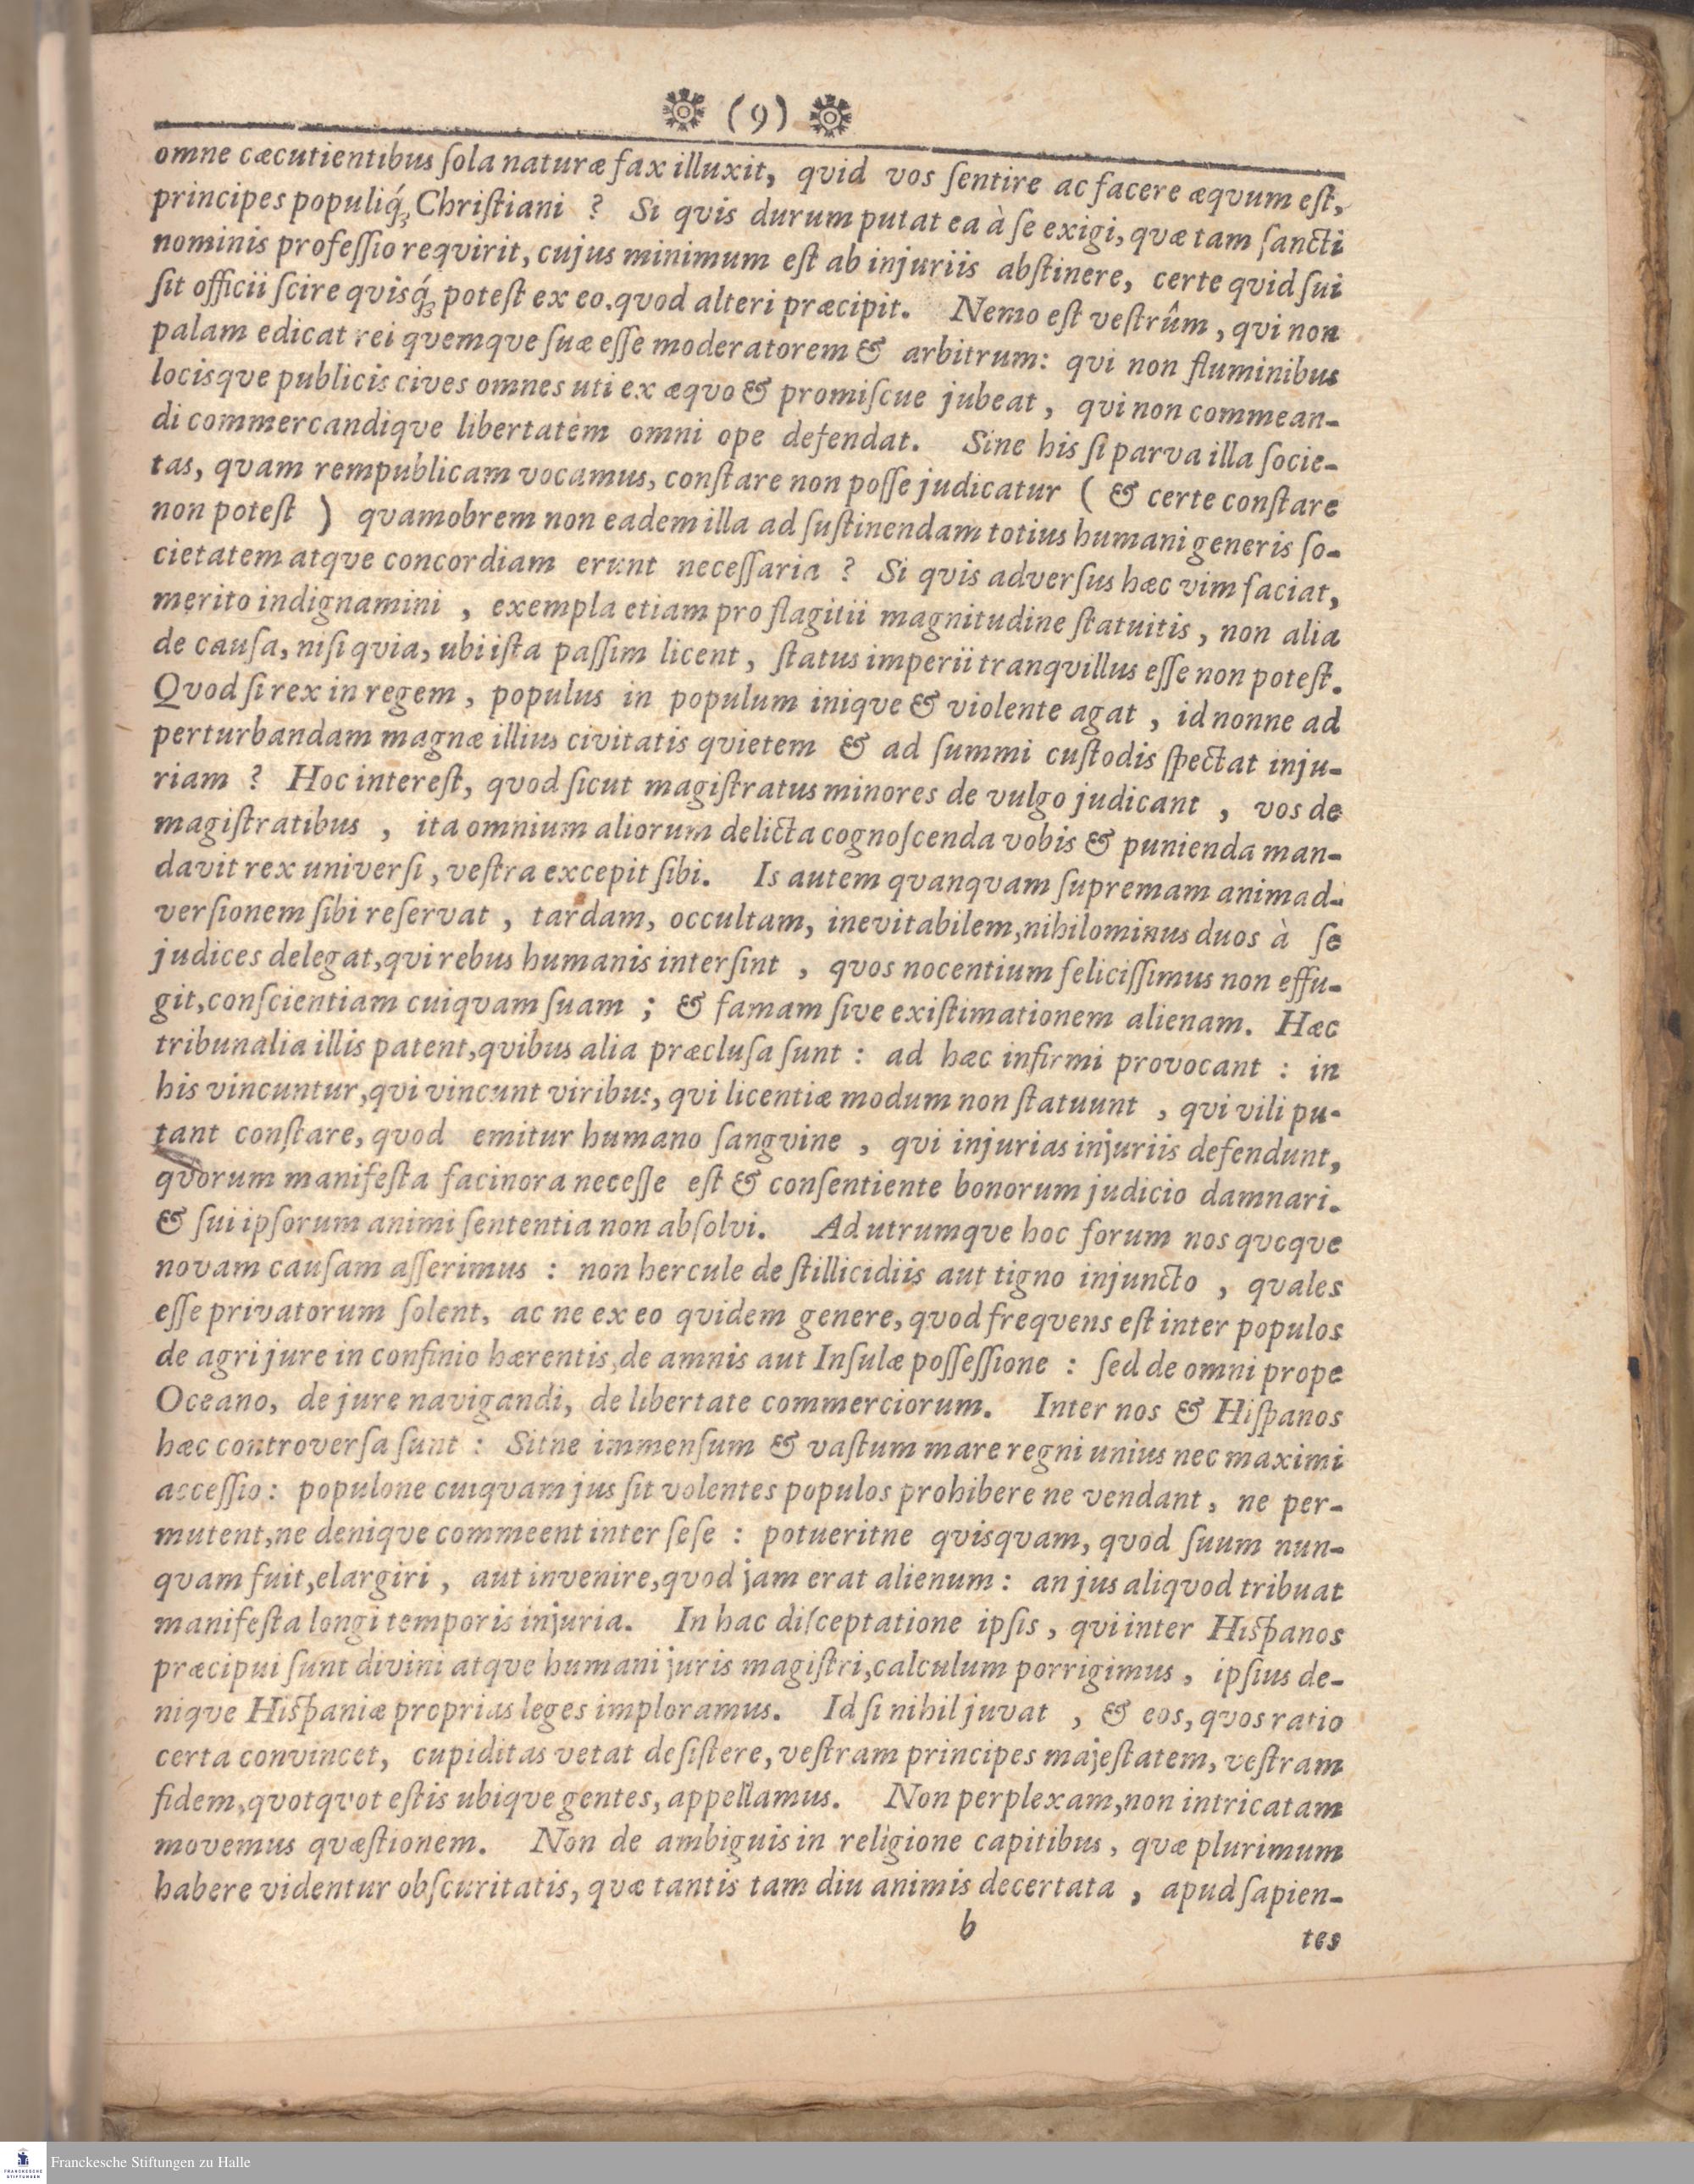 (9)
omne cæcutientibus ſola naturæ fax illuxit, qvid vos ſentire ac facere æqvum eſt,
principes populiq́ꝫ Chriſtiani ? Si qvis durum putat ea à ſe exigi, qvæ tam ſancti
nominis profeſſio reqvirit, cujus minimum eſt ab injuriis abſtinere, certe qvid ſui
ſit officii ſcire qvisq́ꝫ poteſt ex eo. qvod alteri præcipit. Nemo eſt veſtrûm, qvi non
palam edicat rei qvemqve ſuæ eſſe moderatorem & arbitrum: qvi non fluminibus
locisqve publicis cives omnes uti ex æqvo & promiſcue jubeat, qvi non commean-
di commercandiqve libertatem omni ope defendat. Sine his ſi parva illa ſocie-
tas, qvam rempublicam vocamus, conſtare non poſſe judicatur ( & certe conſtare
non poteſt ) qvamobrem non eadem illa ad ſuſtinendam totius humani generis ſo-
cietatem atqve concordiam erunt neceſſaria ? Si qvis adverſus hæc vim faciat,
merito indignamini , exempla etiam pro flagitii magnitudine ſtatuitis, non alia
de cauſa, niſi qvia, ubi iſta paſſim licent, ſtatus imperii tranqvillus eſſe non poteſt.
Qvod ſi rex in regem, populus in populum iniqve & violente agat, id nonne ad
perturbandam magnæ illius civitatis qvietem & ad ſummi cuſtodis ſpectat inju-
riam ? Hoc intereſt, qvod ſicut magiſtratus minores de vulgo judicant , vos de
magiſtratibus , ita omnium aliorum delicta cognoſcenda vobis & punienda man-
davit rex univerſi, veſtra excepit ſibi. Is autem qvanqvam ſupremam animad-
verſionem ſibi reſervat, tardam, occultam, inevitabilem, nihilominus duos à ſe
judices delegat, qvi rebus humanis interſint , qvos nocentium feliciſſimus non effu-
git, conſcientiam cuiqvam ſuam ; & famam ſive exiſtimationem alienam. Hæc
tribunalia illis patent, qvibus alia præcluſa ſunt : ad hæc infirmi provocant : in
his vincuntur, qvi vincunt viribus, qvi licentiæ modum non ſtatuunt , qvi vili pu-
tant conſtare, qvod emitur humano ſangvine , qvi injurias injuriis defendunt,
qvorum manifeſta facinora neceſſe eſt & conſentiente bonorum judicio damnari.
& ſui ipſorum animi ſententia non abſolvi. Ad utrumqve hoc forum nos qvoqve
novam cauſam aſſerimus : non hercule de ſtillicidiis aut tigno injuncto , qvales
eſſe privatorum ſolent, ac ne ex eo qvidem genere, qvod freqvens eſt inter populos
de agri jure in confinio hærentis, de amnis aut Inſulæ poſſeſſione : ſed de omni prope
Oceano, de jure navigandi, de libertate commerciorum. Inter nos & Hiſpanos
hæc controverſa ſunt : Sitne immenſum & vaſtum mare regni unius nec maximi
acceſſio: populone cuiqvam jus ſit volentes populos prohibere ne vendant, ne per-
mutent, ne deniqve commeent inter ſeſe : potueritne qvisqvam, qvod ſuum nun-
qvam fuit, elargiri, aut invenire, qvod jam erat alienum: an jus aliqvod tribuat
manifeſta longi temporis injuria. In hac diſceptatione ipſis, qvi inter Hiſpanos
præcipui ſunt divini atqve humani juris magiſtri, calculum porrigimus, ipſius de-
niqve Hiſpaniæ proprias leges imploramus. Id ſi nihil juvat , & eos, qvos ratio
certa convincet, cupiditas vetat deſiſtere, veſtram principes majeſtatem, veſtram
fidem, qvotqvot eſtis ubiqve gentes, appellamus. Non perplexam, non intricatam
movemus qvæſtionem. Non de ambiguis in religione capitibus, qvæ plurimum
habere videntur obſcuritatis, qvæ tantis tam diu animis decertata , apud ſapien-
b
tes
Franckesche Stiftungen zu Halle
FRANCKESCHE
STIFTUNGEN